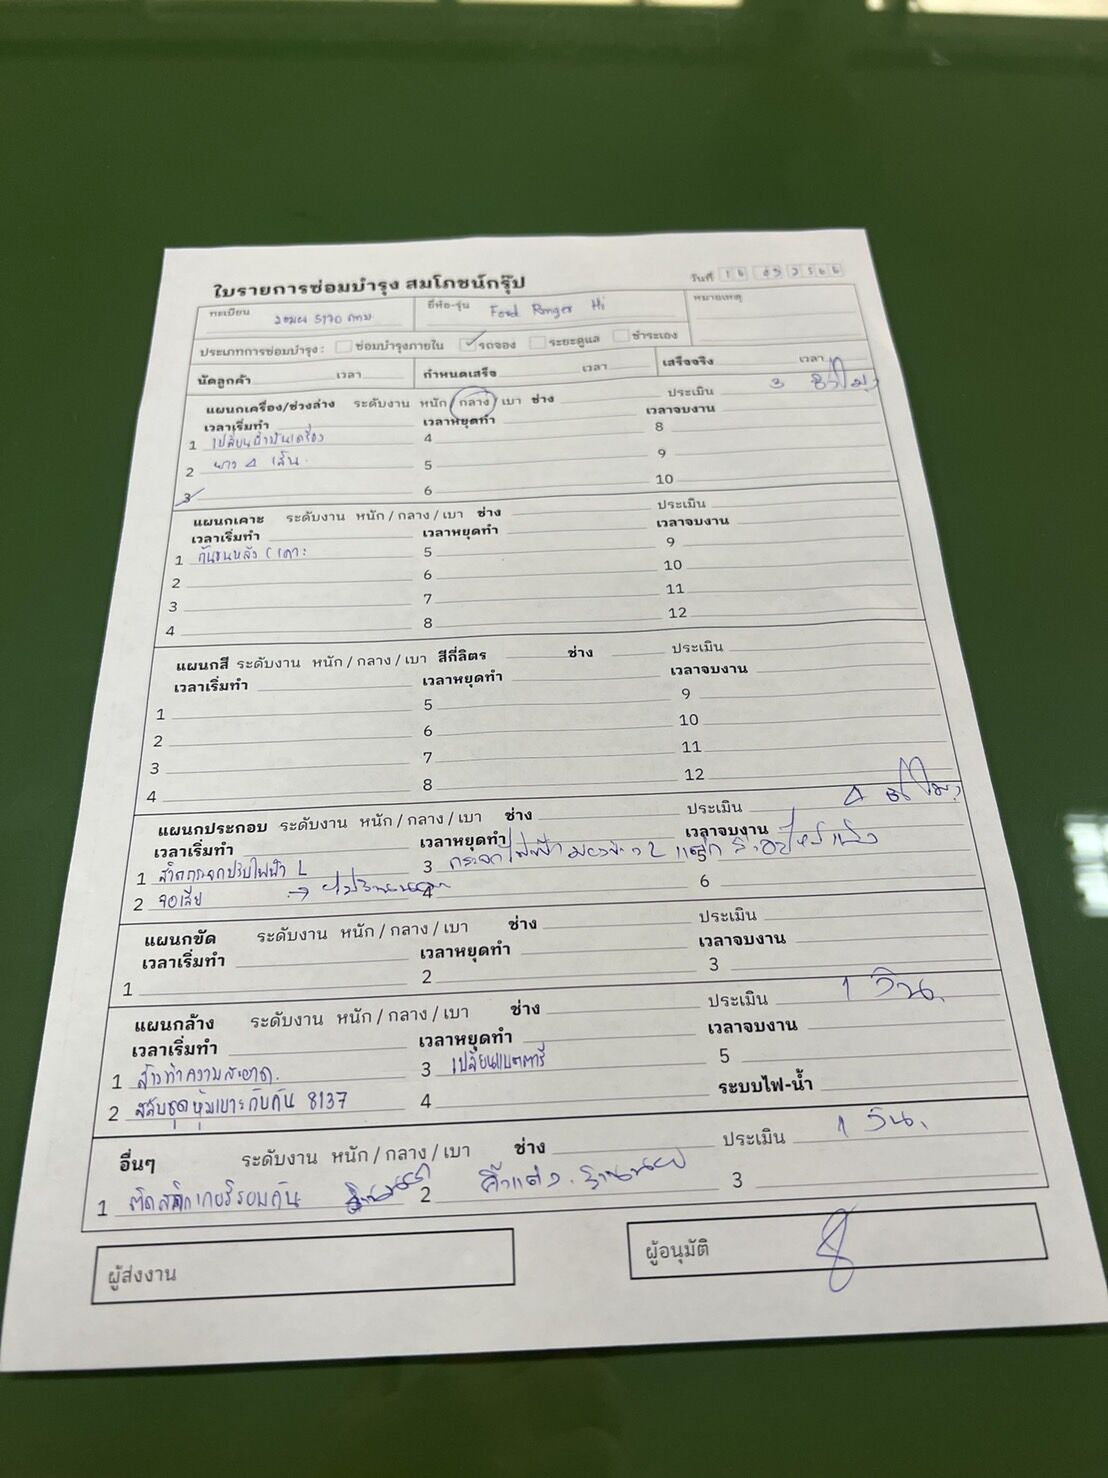 ใบรายการซ่อมบำรุง สมโภชน์กรุ๊ป
วันที่ 16 05 2566
ทะเบียน 5170 กทม
ยี่ห้อ-รุ่น Ford Ranger Hi
หมายเหตุ
ประเภทการซ่อมบำรุง : ซ่อมบำรุงภายใน ✓ รถจอง ระยะดูแล ชำระเอง
นัดลูกค้า เวลา กำหนดเสร็จ เวลา เสร็จจริง เวลา
แผนกเครื่อง/ช่วงล่าง ระดับงาน หนัก / กลาง / เบา ช่าง ประเมิน 3 ชั่วโมง
เวลาเริ่มทำ เวลาหยุดทำ เวลาจบงาน
1 เปลี่ยนน้ำมันเครื่อง 4 8
2 ยาง 4 เส้น. 5 9
3 6 10
แผนกเคาะ ระดับงาน หนัก / กลาง / เบา ช่าง ประเมิน
เวลาเริ่มทำ เวลาหยุดทำ เวลาจบงาน
1 กันชนหลัง เคาะ 5 9
2 6 10
3 7 11
4 8 12
แผนกสี ระดับงาน หนัก / กลาง / เบา สีกี่ลิตร ช่าง ประเมิน
เวลาเริ่มทำ เวลาหยุดทำ เวลาจบงาน
1 5 9
2 6 10
3 7 11
4 8 12
แผนกประกอบ ระดับงาน หนัก / กลาง / เบา ช่าง ประเมิน 4 ชั่วโมง
เวลาเริ่มทำ เวลาหยุดทำ เวลาจบงาน
1 สวิตกระจกปรับไฟฟ้า L 3 กระจกไฟฟ้า 5
2 จอเสีย → 4 6
แผนกขัด ระดับงาน หนัก / กลาง / เบา ช่าง ประเมิน
เวลาเริ่มทำ เวลาหยุดทำ เวลาจบงาน
1 2 3
แผนกล้าง ระดับงาน หนัก / กลาง / เบา ช่าง ประเมิน 1 วัน.
เวลาเริ่มทำ เวลาหยุดทำ เวลาจบงาน
1 ล้างทำความสะอาด. 3 เปลี่ยนแบตตารี่ 5
2 สลับชุดหุ้มเบาะกับคัน 8137 4 ระบบไฟ-น้ำ
อื่นๆ ระดับงาน หนัก / กลาง / เบา ช่าง ประเมิน 1 วัน.
1 ติดสติกเกอร์รอบคัน 2 คิ้วแต่ง 3
ผู้ส่งงาน
ผู้อนุมัติ